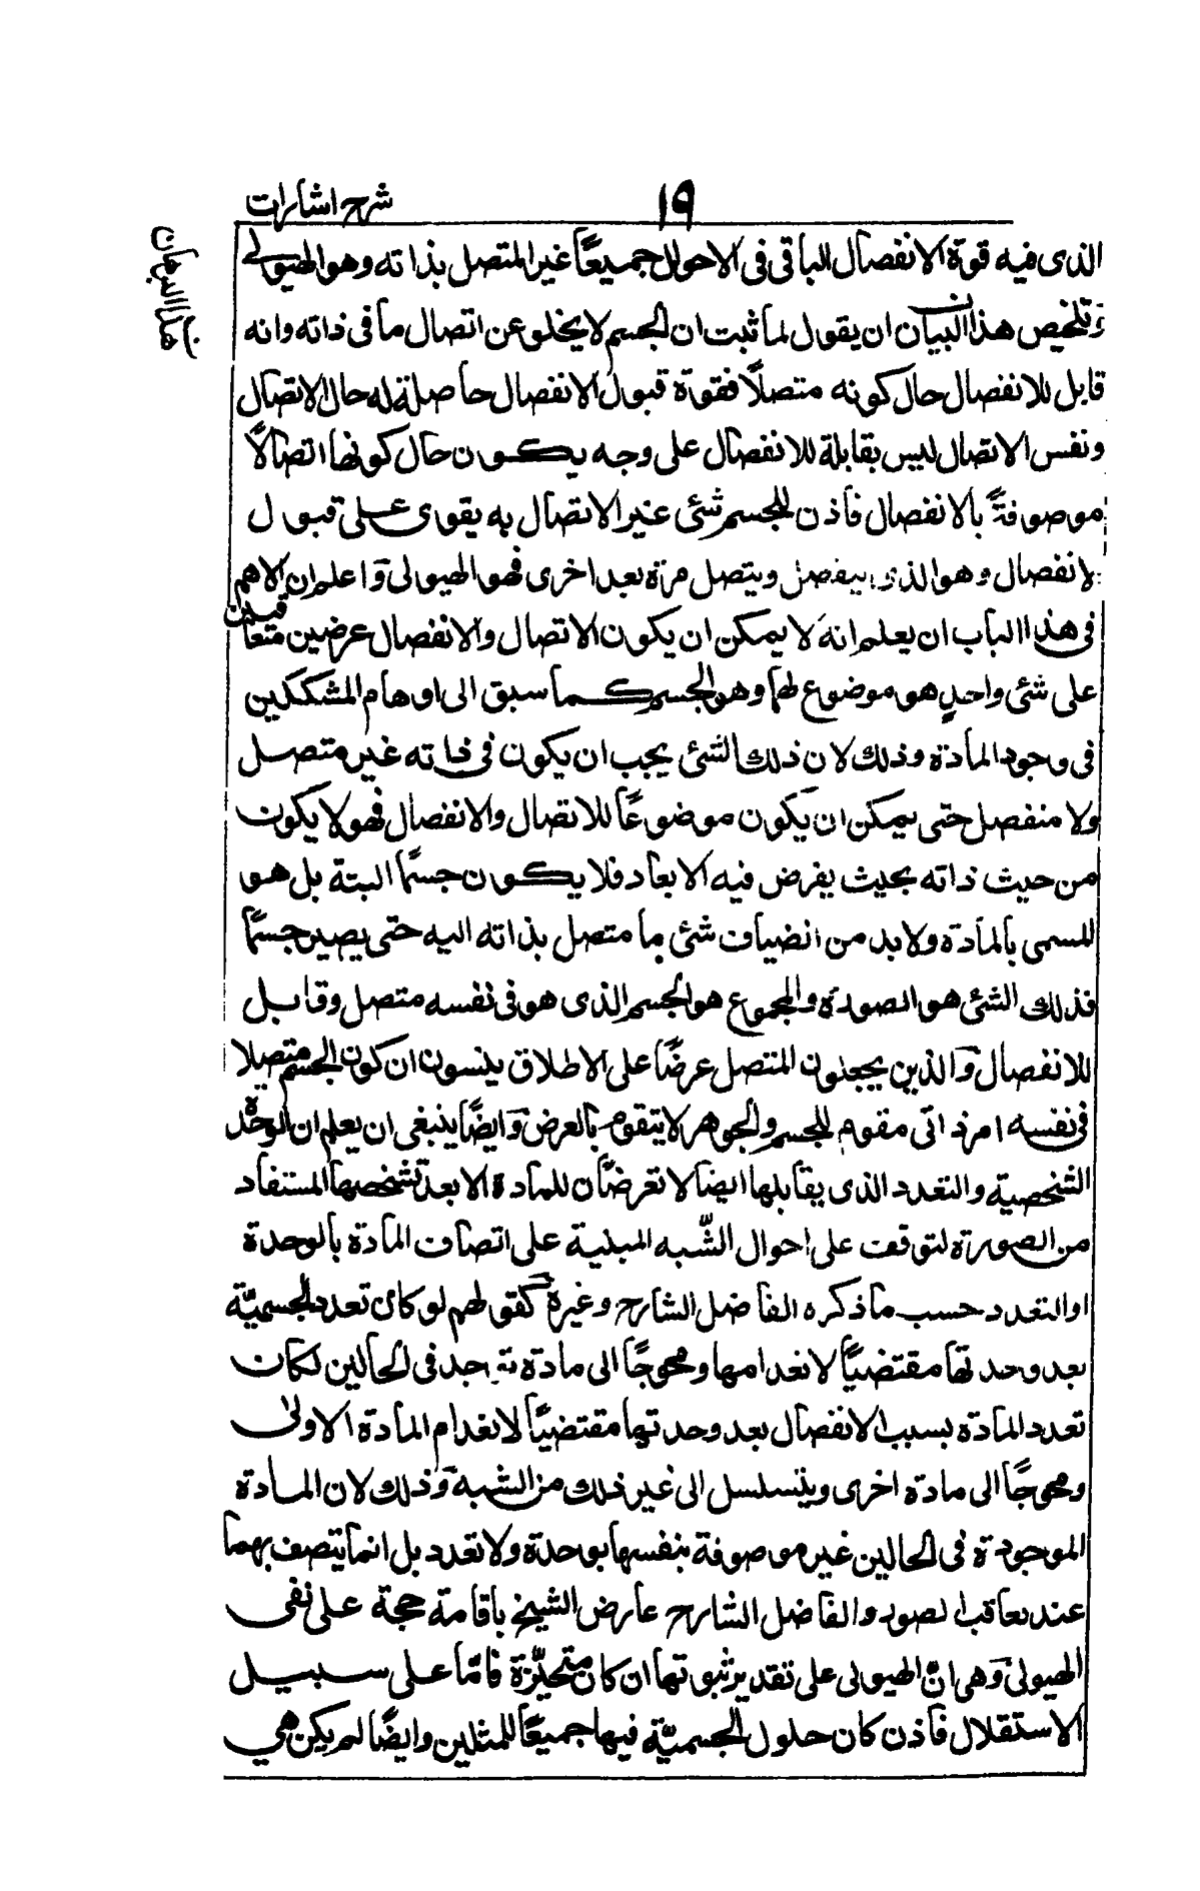 ١٩
شرح اشارات
الذى فيه قوة الانفصال الباقى فى الاحوال جميعًا غير المتصل بذاته وهو الهيولى
وتلخيص هذا البيان ان يقول لما ثبت ان الجسم لا يخلو عن اتصال ما فى ذاته وانه
قابل للانفصال حال كونه متصلًا فقوة قبول الانفصال حاصلة له حال الاتصال
ونفس الاتصال ليس بقابلة للانفصال على وجه يكون حال كونها اتصالًا
موصوفةً بالانفصال فاذن للجسم شئى غير الاتصال به يقوى على قبول
الانفصال وهو الذى ينفصل ويتصل مرة بعد اخرى فهو الهيولى وَاعلم ان الاهم
فى هذا الباب ان يعلم انه لا يمكن ان يكون الاتصال والانفصال عرضين متعاقبين
على شئى واحدٍ هو موضوع لهما وهو الجسم كما سبق الى اوهام المشككين
فى وجود المادة وذلك لان ذلك الشئى يجب ان يكون فى ذاته غير متصل
ولا منفصل حتى يمكن ان يكون موضوعًا للاتصال والانفصال فهو لا يكون
من حيث ذاته بحيث يفرض فيه الابعاد فلا يكون جسمًا البتة بل هو
المسمى بالمادة ولابد من انضياف شئى ما متصل بذاته اليه حتى يصير جسمًا
فذلك الشئى هو الصورة والمجموع هو الجسم الذى هو فى نفسه متصل وقابل
للانفصال وَالذين يجعلون المتصل عرضًا على الاطلاق ينسون ان كون الجسم متصلا
فى نفسه امر ذاتى مقوم للجسم والجوهر لا يتقوم بالعرض وَايضًا ينبغى ان يعلم ان الوحدة
الشخصية والتعدد الذى يقابلها ايضا لا تعرضان للمادة الا بعد تشخصها المستفاد
من الصورة لتوقفت على احوال الشّبه المبنية على اتصاف المادة بالوحدة
او التعدد حسب ما ذكره الفاضل الشارح وغيره كقولهم لو كان تعدد الجسميّة
بعد وحدتها مقتضيًا لانعدامها ومحوجًا الى مادة توجد فى الحالين لكان
تعدد المادة بسبب الانفصال بعد وحدتها مقتضيًا لانعدام المادة الاولى
ومحوجًا الى مادة اخرى ويتسلسل الى غير ذلك من الشبه وَذلك لان المادة
الموجودة فى الحالين غير موصوفة بنفسها بوحدة ولا تعدد بل انما يتصف بهما
عند تعاقب الصور والفاضل الشارح عارض الشيخ باقامة حجة على نفى
الهيولى وَهى انّ الهيولى على تقدير ثبوتها ان كان متحيّزة فامّا على سبيل
الاستقلال فاذن كان حلول الجسميّة فيها جميعًا للمثلين وايضًا لم يكن هى